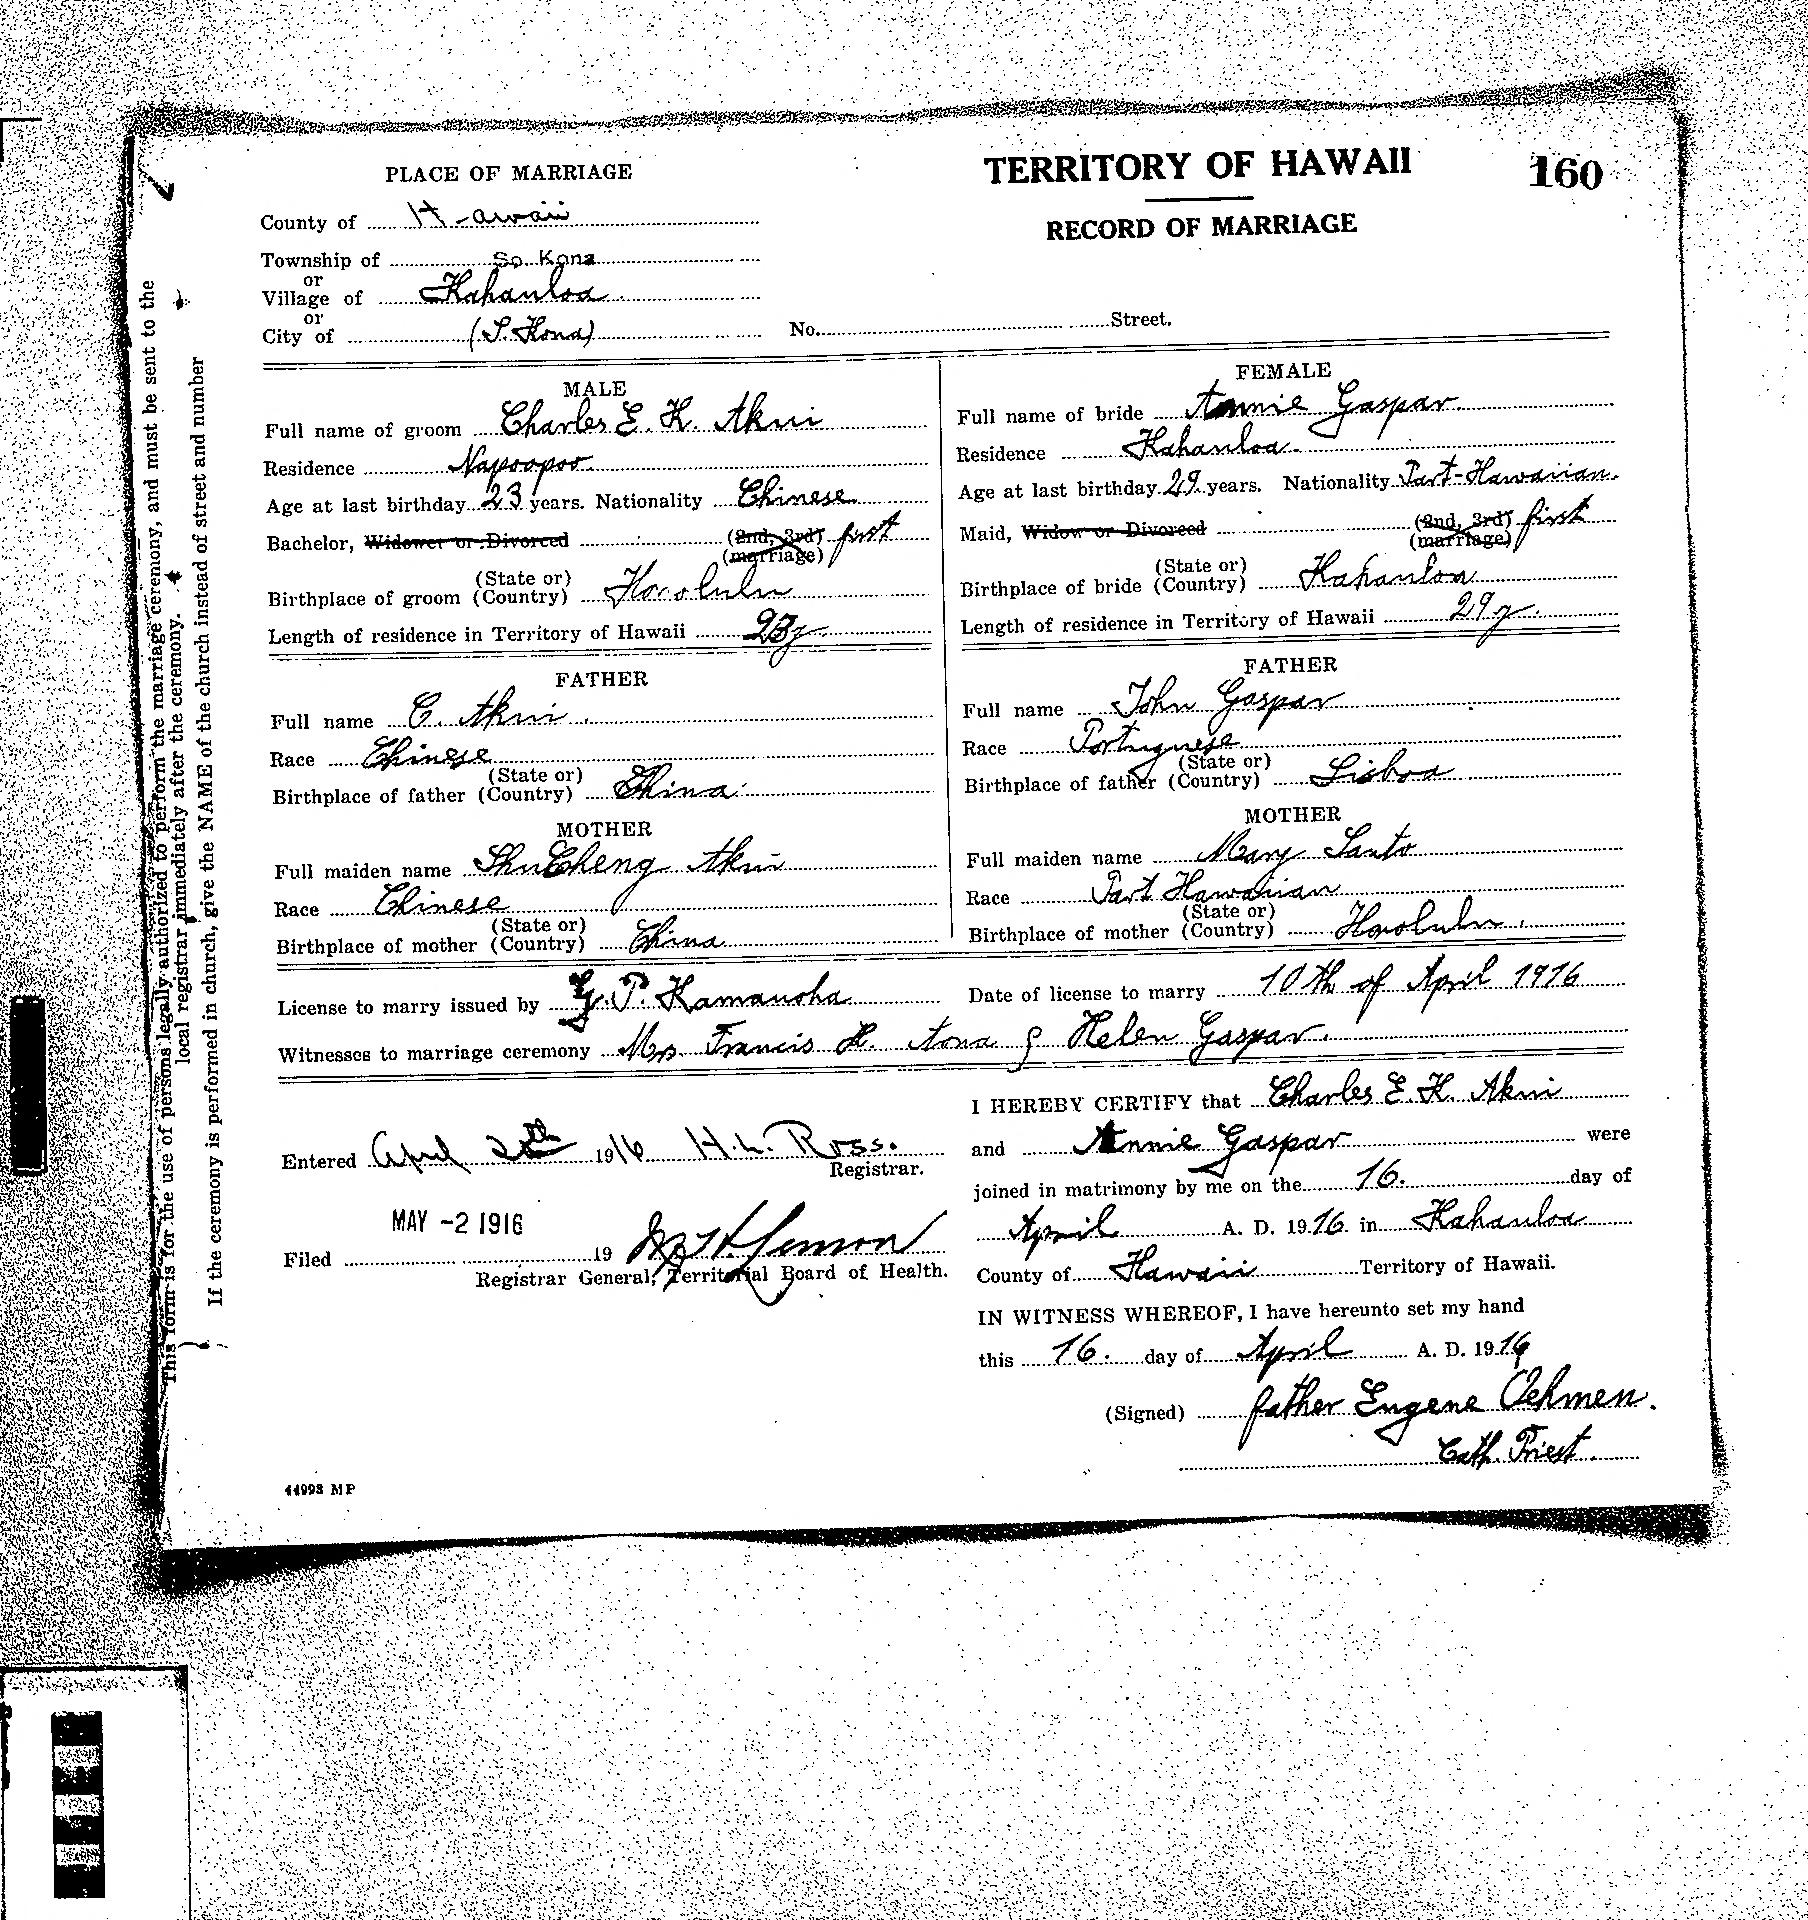 PLACE OF MARRIAGE
TERRITORY OF HAWAII
160
RECORD OF MARRIAGE
County of Hawaii
Township of So. Kona
or
Village of Kahauloa
or
City of (S. Kona) No. Street.
MALE
Full name of groom Charles E. K. Akui
Residence Napoopoo
Age at last birthday 23 years. Nationality Chinese
Bachelor, Widower or Divorced (2nd, 3rd) first
(marriage)
(State or)
Birthplace of groom (Country) Honolulu
Length of residence in Territory of Hawaii 23y
FATHER
Full name C. Akui
Race Chinese
(State or)
Birthplace of father (Country) China
MOTHER
Full maiden name ShuCheng Akui
Race Chinese
(State or)
Birthplace of mother (Country) China
FEMALE
Full name of bride Annie Gaspar
Residence Kahauloa
Age at last birthday 29 years. Nationality Part-Hawaiian
Maid, Widow or Divorced (2nd, 3rd) first
(marriage)
(State or)
Birthplace of bride (Country) Kahauloa
Length of residence in Territory of Hawaii 29y.
FATHER
Full name John Gaspar
Race Portuguese
(State or)
Birthplace of father (Country) Lisboa
MOTHER
Full maiden name Mary Santo
Race Part Hawaiian
(State or)
Birthplace of mother (Country) Honolulu
License to marry issued by G. P. Kamauoha Date of license to marry 10th of April 1916
Witnesses to marriage ceremony Mrs. Francis H. Aona & Helen Gaspar.
Entered April 1916 H. L. Ross.
Registrar.
MAY -2 1916
Filed 19
Registrar General, Territorial Board of Health.
I HEREBY CERTIFY that Charles E. K. Akui
and Annie Gaspar were
joined in matrimony by me on the 16. day of
April A. D. 1916 in Kahauloa
County of Hawaii Territory of Hawaii.
IN WITNESS WHEREOF, I have hereunto set my hand
this 16. day of April A. D. 1916
(Signed) father Eugene Oehmen.
Cath. Priest.
44993 MP
This form is for the use of persons legally authorized to perform the marriage ceremony, and must be sent to the
local registrar immediately after the ceremony.
If the ceremony is performed in church, give the NAME of the church instead of street and number